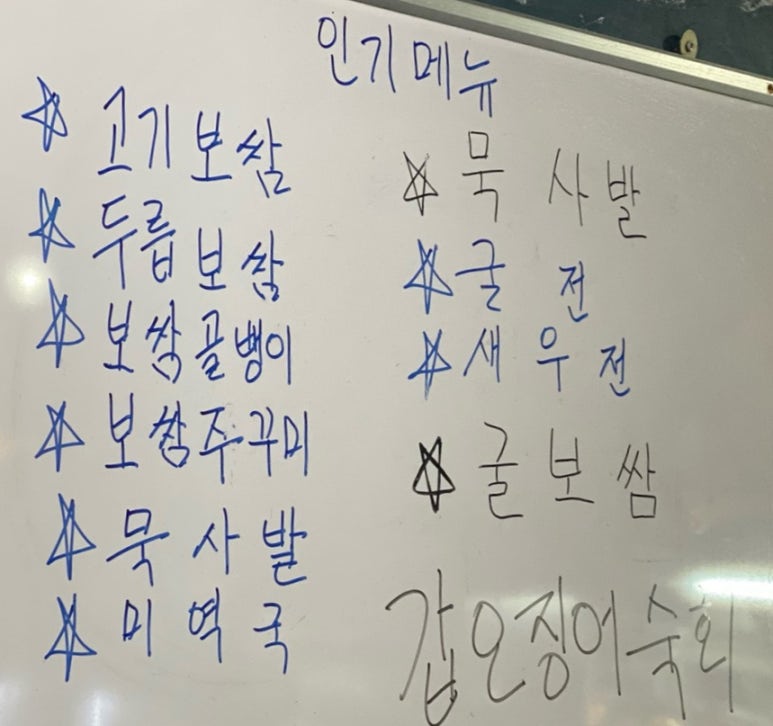 인기메뉴
☆ 고기보쌈
☆ 두릅보쌈
☆ 보쌈골뱅이
☆ 보쌈주꾸미
☆ 묵사발
☆ 미역국
☆ 묵사발
☆ 굴전
☆ 새우전
☆ 굴보쌈
갑오징어숙회